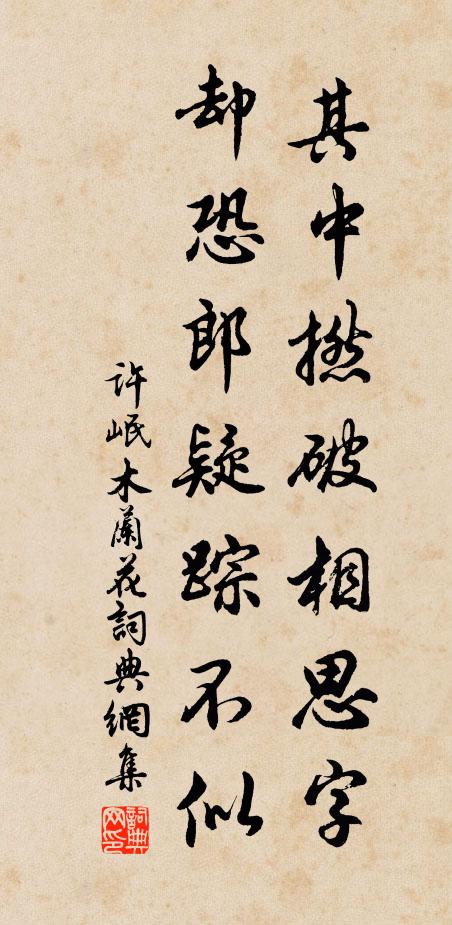 其中撚破相思字
却恐郎疑踪不似
許岷木蘭花詞典網集
詞典網印